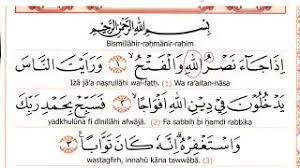 بِسْمِ اللّٰهِ الرَّحْمٰنِ الرَّحِيْمِ
Bismillāhir-raḥmānir-rahīm
اِذَا جَاۤءَ نَصْرُ اللّٰهِ وَالْفَتْحُ ۙ ١ وَرَاَيْتَ النَّاسَ
Iżā jā'a naṣrullāhi wal-fatḥ. (1) Wa ra'aitan-nāsa
يَدْخُلُوْنَ فِيْ دِيْنِ اللّٰهِ اَفْوَاجًا ۙ ٢ فَسَبِّحْ بِحَمْدِ رَبِّكَ
yadkhulūna fī dīnillāhi afwājā. (2) Fa sabbiḥ bi ḥamdi rabbika
وَاسْتَغْفِرْهُ ۗ اِنَّهٗ كَانَ تَوَّابًا ٣
wastagfirh, innahū kāna tawwābā. (3)